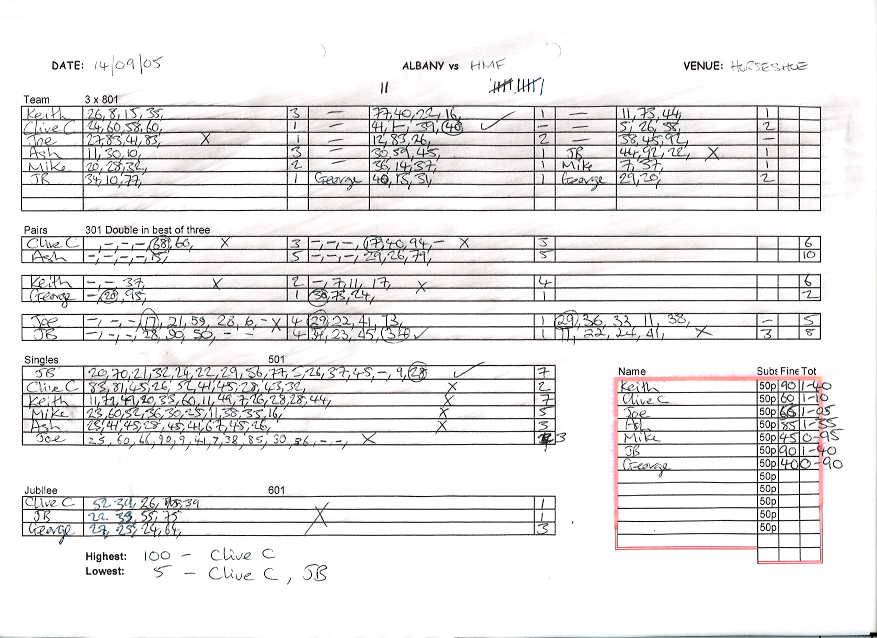 DATE: 14/09/05 ALBANY vs HMF VENUE: HORSESHOE
11
Team 3 x 801
Keith 26, 8, 15, 35, 3 — 77, 40, 22, 16, 1 — 11, 73, 44, 1
Clive C 24, 60, 58, 60, 1 — 41, 1-, 39, 40 ✓ — — 5, 26, 58, 2
Joe 27, 83, 41, 83, X — — 12, 83, 26, 2 — 38, 45, 92, —
Ash 11, 30, 10, 3 — 30, 59, 45, 1 JB 44, 92, 22, X 1
Mike 20, 28, 32, 2 — 36, 14, 37, 1 Mike 7, 37, 1
JB 34, 10, 77, 1 George 40, 15, 31, 1 George 29, 20, 2
Pairs 301 Double in best of three
Clive C -, -, -, 68, 60, X 3 -, -, -, 17, 40, 94, - X 3 6
Ash -, -, -, -, 15, 5 -, -, -, -, 29, 26, 79, 5 10
Keith -, -, 37, X 2 -, 7, 11, 17, X 4 6
George -, 28, 95, 1 38, 75, 24, 1 2
Joe -, -, -, 17, 21, 59, 28, 6, - X 4 29, 22, 41, 73, 1 29, 36, 33, 11, 38, — 5
JB -, -, -, 28, 90, 50, - - 4 34, 23, 45, 34 ✓ 1 11, 22, 24, 41, X 3 8
Singles 501
JB 20, 70, 21, 32, 24, 22, 29, 56, 77, -, 26, 37, 45, -, 9, 28 ✓ 7
Clive C 83, 81, 45, 26, 52, 41, 45, 28, 43, 32, X 2
Keith 11, 79, 49, 20, 35, 60, 11, 49, 7, 26, 28, 28, 44, X 7
Mike 23, 60, 52, 36, 30, 25, 11, 38, 33, 16, X 5
Ash 23, 41, 45, 25, 45, 41, 67, 45, 26, X 3
Joe 25, 60, 66, 90, 9, 41, 7, 38, 85, 30, 36, -, -, X 3
Name Subs Fine Tot
Keith 50p 90 1-40
Clive C 50p 60 1-10
Joe 50p 1-05
Ash 50p 85 1-35
Mike 50p 45 0-95
JB 50p 90 1-40
George 50p 40 0-90
50p
50p
50p
50p
50p
Jubilee 601
Clive C 52, 39, 26, 39 1
JB 22, 39, 55, 75 X 1
George 27, 25, 24, 64, 3
Highest: 100 - Clive C
Lowest: 5 - Clive C, JB